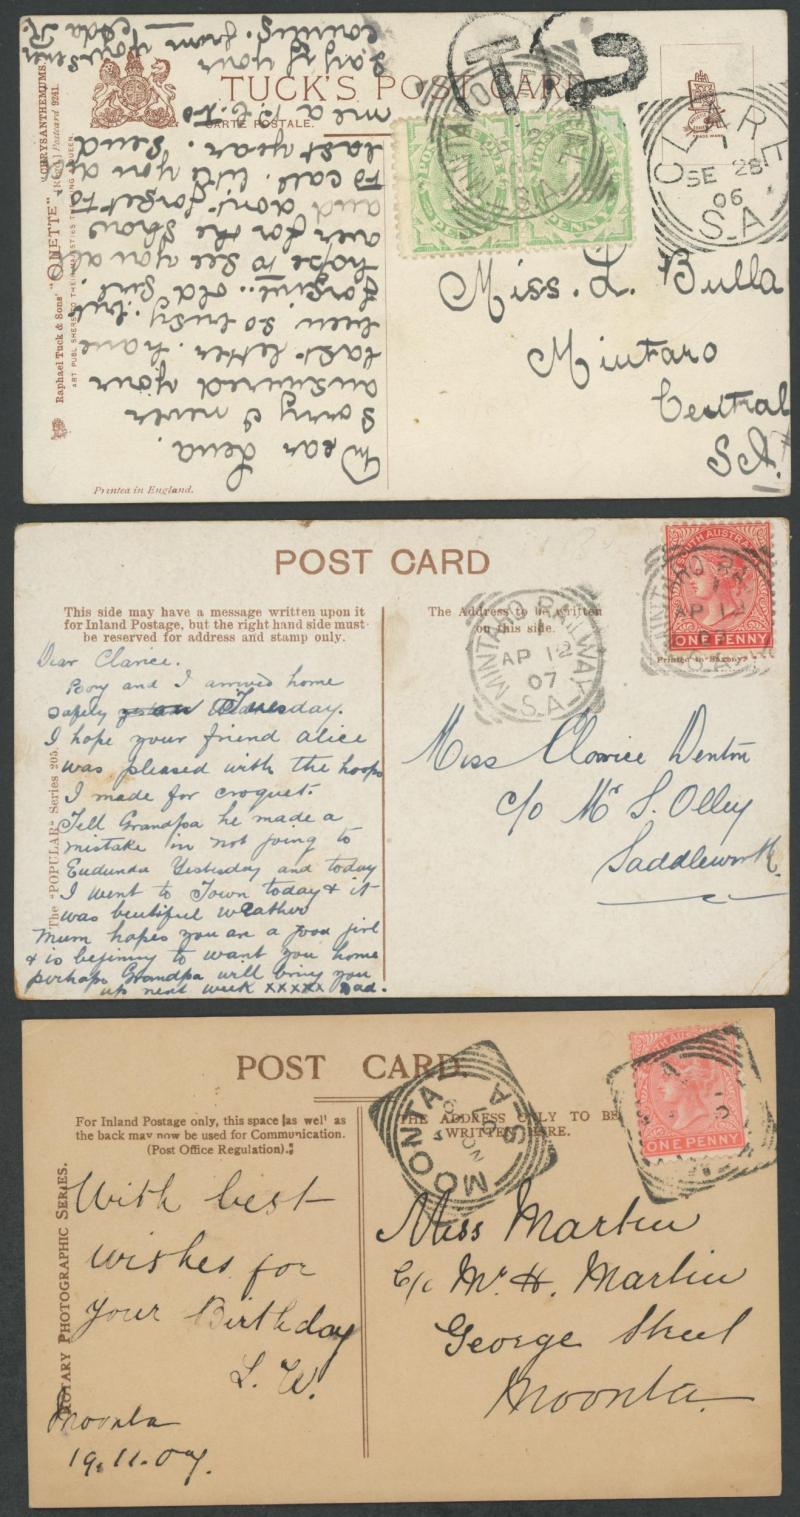 TUCK'S POST CARD
CARTE POSTALE.
"CHRYSANTHEMUMS."
Raphael Tuck & Sons' "OILETTE" [REGD.] Postcard 9241.
ART PUBLISHERS TO THEIR MAJESTIES THE KING QUEEN.
Printed in England.
Dear Lena.
Sorry I never
answered your
last letter. have
been so busy. but
forgive. old girl.
hope to see you all
over for the show
and don't forget to
to call. like you did
last year. Send
me a P.C. to
say if your
coming. from
T
2
PENNY
PENNY
S.A.
CLARE
7
SE 28
06
S.A
Miss. L. Bulla
Mintaro
Central
S.A.
POST CARD
This side may have a message written upon it
for Inland Postage, but the right hand side must
be reserved for address and stamp only.
The Address to be written
on this side.
The "POPULAR" Series 205.
Dear Clarice.
Rory and I arrived home
safely Tuesday.
I hope your friend alice
was pleased with the hoops
I made for croquet.
Tell Grandpa he made a
mistake in not going to
Eudunda Yesterday and today
I went to Town today & it
was beutiful weather
Mum hopes you are a good girl
& is begining to want you home
perhaps Grandpa will bring you
up next week xxxxx Dad.
MINTARO RAILWAY
AP 12
07
S.A
SOUTH AUSTRALIA
ONE PENNY
MINTARO RA
AP 12
Printed in Saxony.
Miss Clarice Denton
c/o Mr S. Olley
Saddleworth.
POST CARD.
For Inland Postage only, this space (as well as
the back may now be used for Communication.
(Post Office Regulation).
THE ADDRESS ONLY TO BE
WRITTEN HERE.
ROTARY PHOTOGRAPHIC SERIES.
With best
wishes for
your Birthday
L. W.
Moonta
19.11.07.
MOONTA
S.A
NO
07
SOUTH AUSTRALIA
ONE PENNY
Miss Martin
C/o Mr H. Martin
George Street
Moonta.